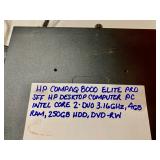 HP COMPAQ 8000 ELITE PRO
SFF HP DESKTOP COMPUTER PC
INTEL CORE 2-DUO 3.16GHZ, 4GB
RAM, 250GB HDD, DVD-RW